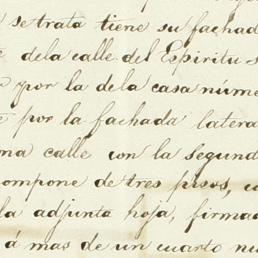 se trata tiene su fachad
de la calle del Espiritu-s
por la de la casa núme
por la fachada latera
ma calle con la segund
ompone de tres pisos, c
la adjunta hoja, firma
á mas de un cuarto nu